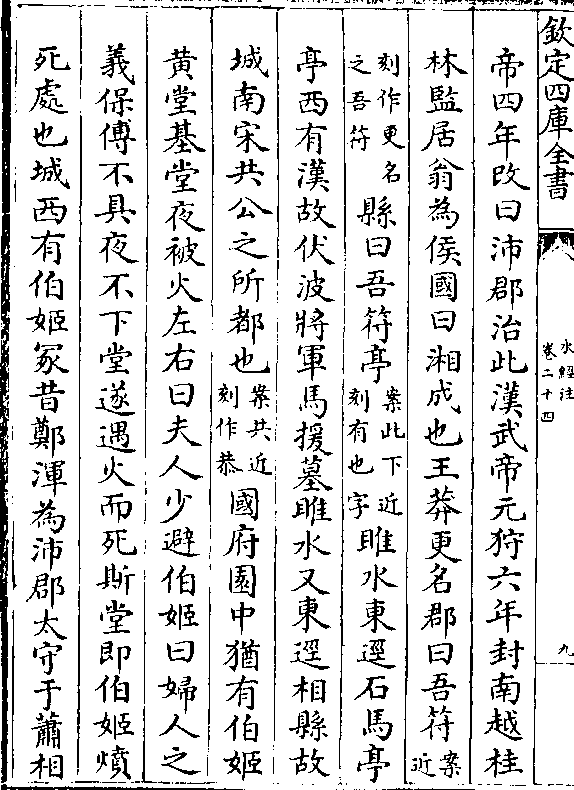 欽定四庫全書
水經注
卷二十四
九
帝四年改曰沛郡治此漢武帝元狩六年封南越桂
林監居翁為侯國曰湘成也王莽更名郡曰吾符案近
刻作更名之吾符縣曰吾符亭案此下近刻有也字睢水東逕石馬亭
亭西有漢故伏波將軍馬援墓睢水又東逕相縣故
城南宋共公之所都也案共近刻作恭國府園中猶有伯姬
黄堂基堂夜被火左右曰夫人少避伯姬曰婦人之
義保傅不具夜不下堂遂遇火而死斯堂即伯姬燌
死處也城西有伯姬冢昔鄭渾為沛郡太守于蕭相